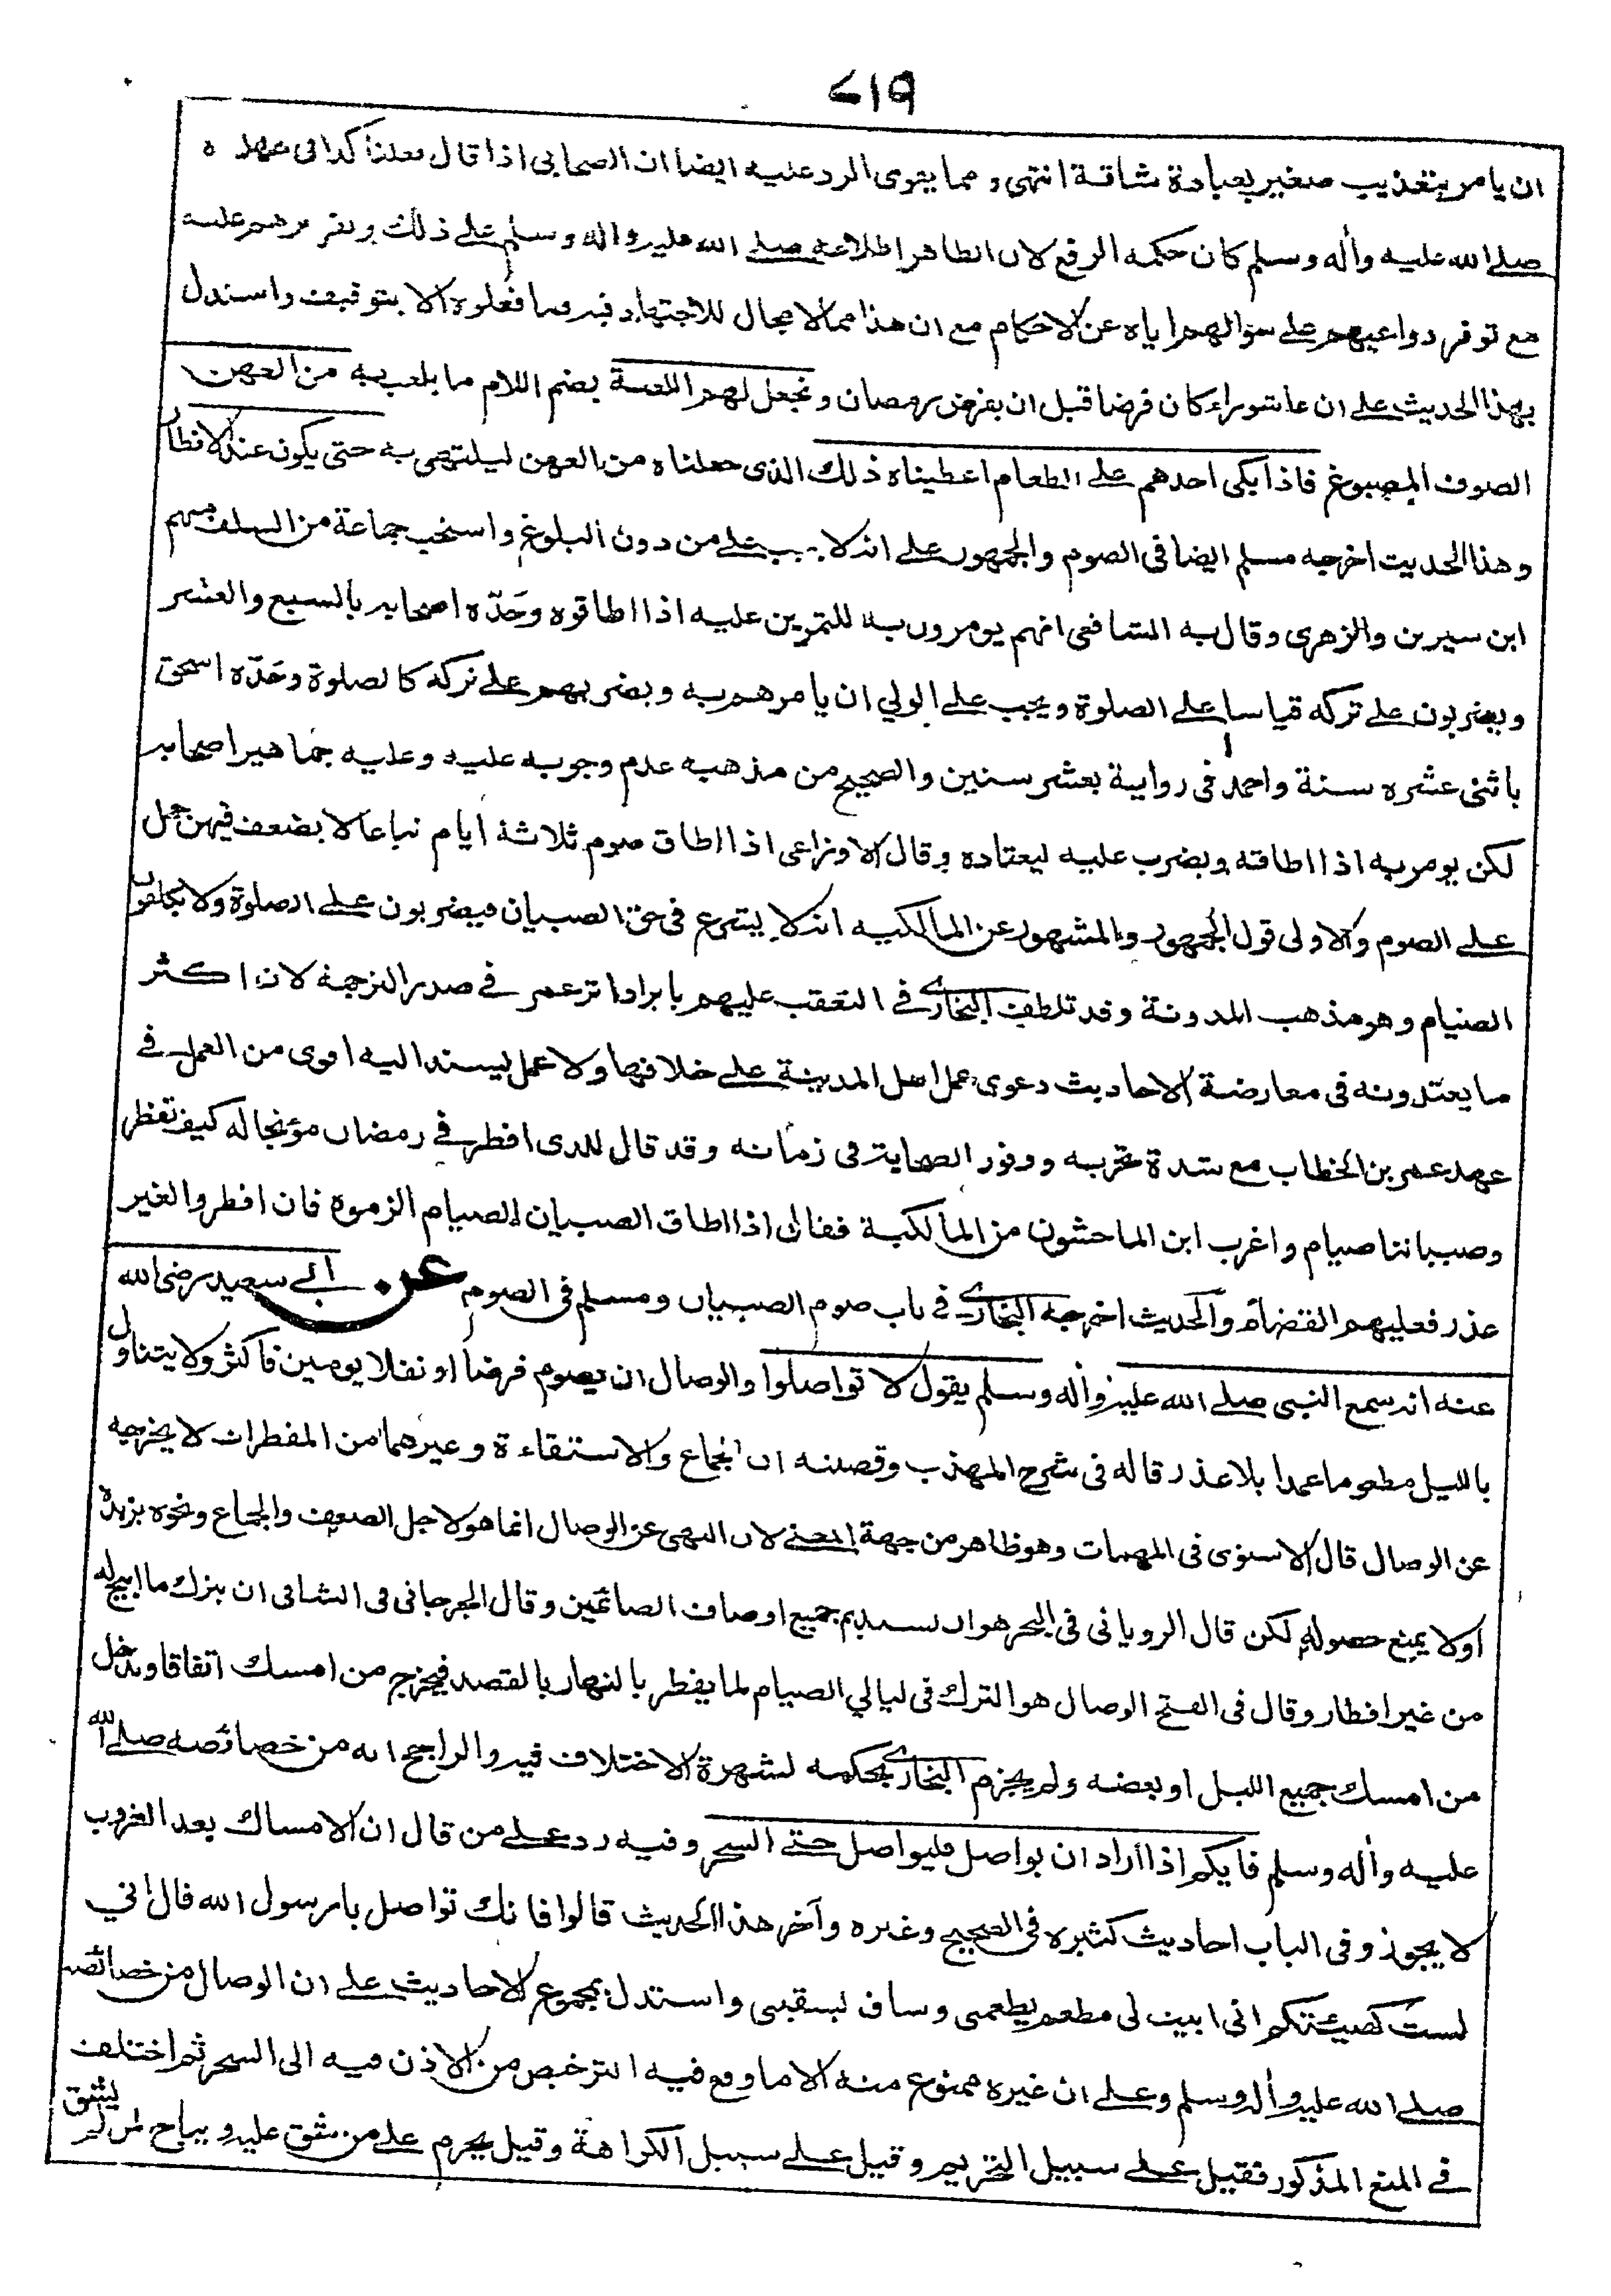 ٢١٩
ان يامر بتعذيب صغير بعبادة شاقة انتهى ومما يقوى الرد عليه ايضا ان الصحابى اذا قال فعلنا كذا فى عهده
صلى الله عليه وأله وسلم كان حكمه الرفع لان الظاهر اطلاعه صلى الله عليه وأله وسلم على ذلك وتقريرهم عليه
مع توفر دواعيهم على سؤالهم اياه عن الاحكام مع ان هذا مما لا مجال للاجتهاد فيه فما فعلوه الا بتوقيف واستدل
بهذا الحديث على ان عاشوراء كان فرضا قبل ان يفرض رمضان ونجعل لهم اللعبة بضم اللام ما يلعب به من العهن
الصوف المصبوغ فاذا بكى احدهم على الطعام اعطيناه ذلك الذى جعلناه من العهن ليلتهى به حتى يكون عند الافطار
وهذا الحديث اخرجه مسلم ايضا فى الصوم والجمهور على انه لا يجب على من دون البلوغ واستحب جماعة من السلف منهم
ابن سيرين والزهرى وقال به الشافعى انهم يومرون به للتمرين عليه اذا اطاقوه وحَدّه اصحابه بالسبع والعشر
ويضربون على تركه قياسا على الصلوة ويجب على الولي ان يامرهم به ويضربهم على تركه كالصلوة وحَدّه اسحق
باثنى عشره سنة واحمد فى رواية بعشر سنين والصحيح من مذهبه عدم وجوبه عليه وعليه جماهير اصحابه
لكن يومر به اذا اطاقه ويضرب عليه ليعتاده وقال الاوزاعى اذا اطاق صوم ثلاثة ايام تباعا لا يضعف فيهن حمل
على الصوم والاولى قول الجمهور والمشهور عن المالكيه انه لا يشرع فى حق الصبيان فيضربون على الصلوة ولا يكلفون
الصيام وهو مذهب المدونة وقد تلطف البخارى في التعقب عليهم بايراد اثر عمر في صدر الترجمة لان اكثر
ما يعتمدونه فى معارضة الاحاديث دعوى عمل اهل المدينة على خلافها ولا عمل يستند اليه اقوى من العمل في
عهد عمر بن الخطاب مع شدة تحريه ووفور الصحابة فى زمانه وقد قال للذى افطر في رمضان موبخا له كيف تفطر
وصبياننا صيام واغرب ابن الماجشون من المالكية فقال اذا اطاق الصبيان الصيام الزموه فان افطروا لغير
عذر فعليهم القضاء والحديث اخرجه البخارى في باب صوم الصبيان ومسلم فى الصوم عن ابي سعيد رضى الله
عنه انه سمع النبى صلى الله عليه وأله وسلم يقول لا تواصلوا والوصال ان يصوم فرضا او نفلا يومين فاكثر ولا يتناول
بالليل مطعوما عمدا بلا عذر قاله فى شرح المهذب وقضيته ان الجماع والاستقاءة وغيرهما من المفطرات لا يخرجه
عن الوصال قال الاسنوى فى المهمات وهو ظاهر من جهة المعنى لان النهى عن الوصال انما هو لاجل الضعف والجماع ونحوه يزيده
اولا يمنع حصوله لكن قال الرويانى فى البحر هو ان يستديم جميع اوصاف الصائمين وقال الجرجانى فى الشافى ان يترك ما ابيح له
من غير افطار وقال فى الفتح الوصال هو الترك فى ليالي الصيام لما يفطر بالنهار بالقصد فيخرج من امسك اتفاقا ويدخل
من امسك جميع الليل او بعضه ولم يجزم البخارى بحكمه لشهرة الاختلاف فيه والراجح انه من خصائصه صلى الله
عليه وأله وسلم فايكم اذا اراد ان يواصل فليواصل حتى السحر وفيه رد على من قال ان الامساك بعد الغروب
لا يجوز وفى الباب احاديث كثيره فى الصحيح وغيره وآخر هذا الحديث قالوا فانك تواصل يا رسول الله قال اني
لست كهيئتكم انى ابيت لى مطعم يطعمنى وساق يسقينى واستدل بمجموع الاحاديث على ان الوصال من خصائصه
صلى الله عليه وأله وسلم وعلى ان غيره ممنوع منه الا ما وقع فيه الترخيص من الاذن فيه الى السحر ثم اختلف
في المنع المذكور فقيل على سبيل التحريم وقيل على سبيل الكراهة وقيل يحرم على من شق عليه ويباح لمن لم يشق